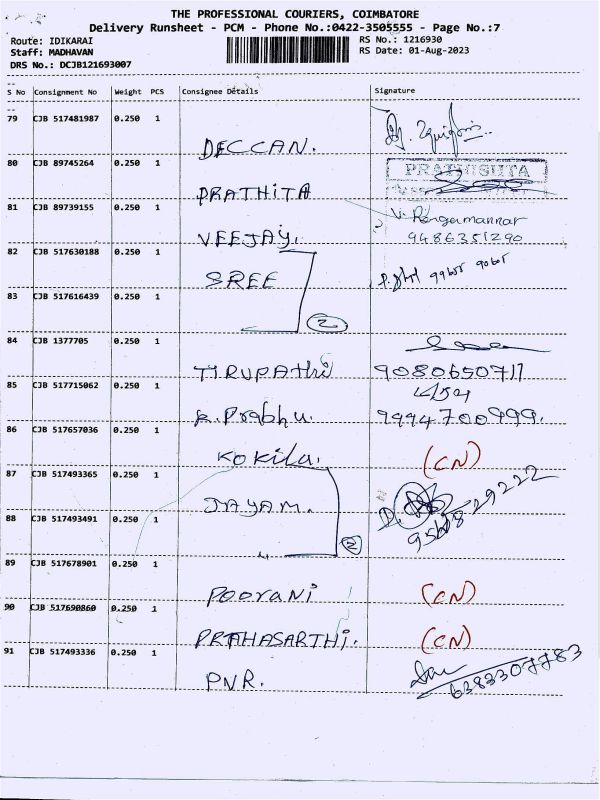 THE PROFESSIONAL COURIERS, COIMBATORE
Delivery Runsheet - PCM - Phone No.:0422-3505555 - Page No.:7
Route: IDIKARAI
RS No.: 1216930
Staff: MADHAVAN
RS Date: 01-Aug-2023
DRS No.: DCJB121693007
S No Consignment No Weight PCS Consignee Details Signature
79 CJB 517481987 0.250 1
DECCAN.
80 CJB 89745264 0.250 1
PRATHITA
81 CJB 89739155 0.250 1 V. Rengamannar
VEEJAY. 9486351290
82 CJB 517630188 0.250 1
SREE
83 CJB 517616439 0.250 1
2
84 CJB 1377705 0.250 1
TIRUPAThi 9080650711
85 CJB 517715062 0.250 1
K. Prabhu. 9994700999.
86 CJB 517657036 0.250 1
KOKila. (CN)
87 CJB 517493365 0.250 1
JAYAM.
88 CJB 517493491 0.250 1
2
89 CJB 517678901 0.250 1
POORANi (CN)
90 CJB 517690860 0.250 1
PRTHASARTHi. (CN)
91 CJB 517493336 0.250 1
PNR. 6383307783